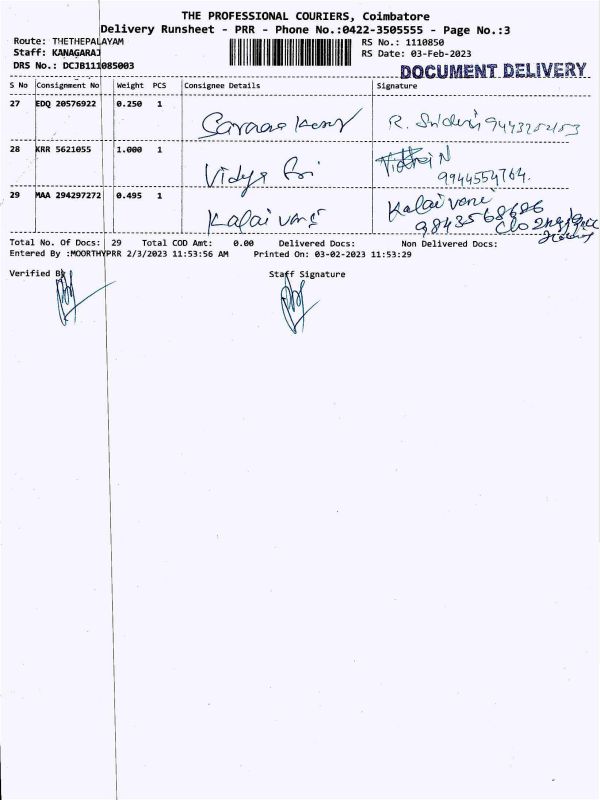 THE PROFESSIONAL COURIERS, Coimbatore
Delivery Runsheet - PRR - Phone No.:0422-3505555 - Page No.:3
Route: THETHEPALAYAM RS No.: 1110850
Staff: KANAGARAJ RS Date: 03-Feb-2023
DRS No.: DCJB111085003 DOCUMENT DELIVERY
S No Consignment No Weight PCS Consignee Details Signature
27 EDQ 20576922 0.250 1
R.
28 KRR 5621055 1.000 1
Vidya N
9944554764.
29 MAA 294297272 0.495 1 Kalaivani Kalaivani
9843568686
Total No. Of Docs: 29 Total COD Amt: 0.00 Delivered Docs: Non Delivered Docs:
Entered By :MOORTHYPRR 2/3/2023 11:53:56 AM Printed On: 03-02-2023 11:53:29
Verified By Staff Signature